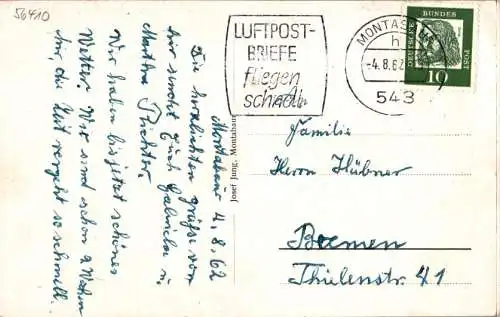 56410
LUFTPOST-
BRIEFE
fliegen
schnell
MONTABAUR
h
-4.8.62
543
DEUTSCHE
BUNDES
POST
10
Josef Jung, Montabaur
Montabaur 4.8.62
Die herzlichsten Grüße von
hier sendet Euch Gabriele u.
Martha Richter.
Wir haben bis jetzt schönes
Wetter. Wir sind schon 2 Wochen
hier, die Zeit vergeht so schnell.
An
Familie
Herrn Hübner
Bremen
Thülenstr. 41